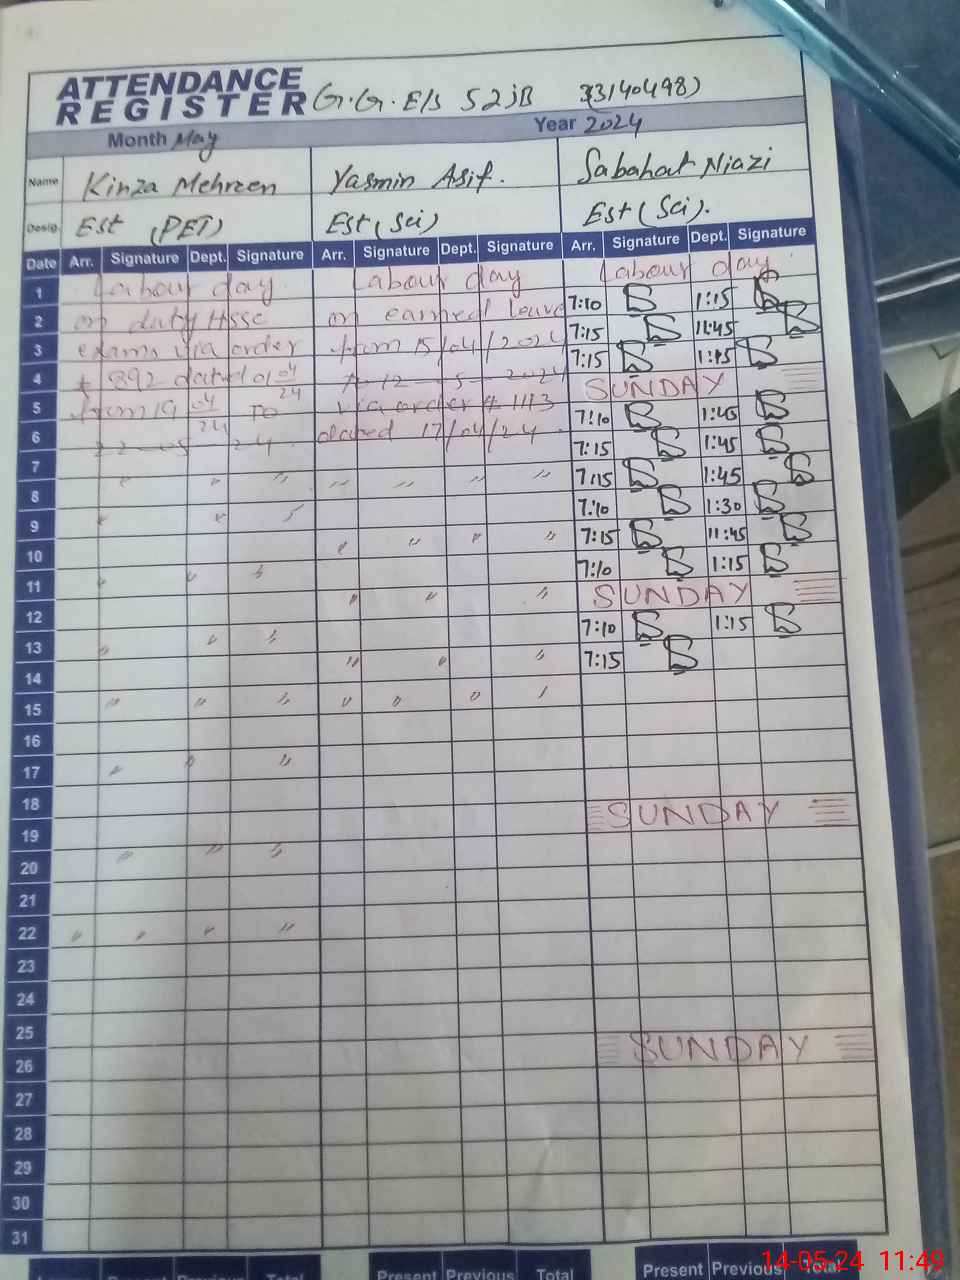 ATTENDANCE
REGISTER G.G.E/S 52 JB 33140498)
Month May Year 2024
Name Kinza Mehreen Yasmin Asif. Sabahat Niazi
Desig. Est (PET) Est (Sci) Est (Sci).
Date Arr. Signature Dept. Signature Arr. Signature Dept. Signature Arr. Signature Dept. Signature
1 Labour day Labour day Labour day
2 on duty Hssc on earned leave 7:10 1:15
3 exams via order from 15/04/2024 7:15 11:45
4 # 892 dated 04/24 to 12-5-2024 7:15 1:15
5 from 19 04/24 TO via order # 1113 SUNDAY
6 24 dated 17/04/24 7:10 1:45
7 7:15 1:45
8 7:15 1:45
9 7:10 1:30
10 7:15 11:45
11 7:10 1:15
12 SUNDAY
13 7:10 1:15
14 7:15
15
16
17
18
19 SUNDAY
20
21
22
23
24
25
26 SUNDAY
27
28
29
30
31
Present Previous Total Present Previous Total Present Previous Total
14-05-24 11:49